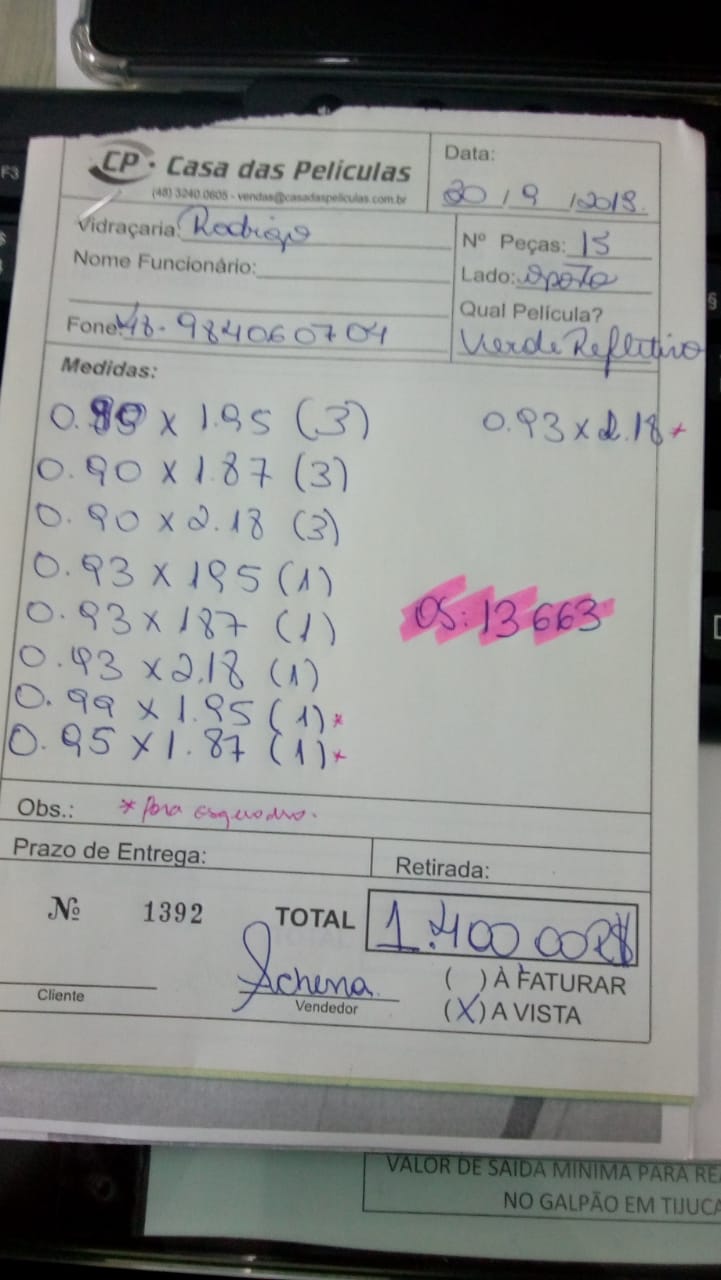 F3
CP · Casa das Películas
(48) 3240.0605 - vendas@casadaspeliculas.com.br
Data:
20 / 9 / 2018.
Vidraçaria: Rodrigo
Nome Funcionário:
Fone: 48. 984060704
Nº Peças: 15
Lado: oposto
Qual Película?
Verde Refletivo
Medidas:
0. x 1.95 (3)
0.93 x 2.18 *
0.90 x 1.87 (3)
0.90 x 2.18 (3)
0.93 x 195 (1)
0.93 x 187 (1)
OS: 13663
0.93 x 2.18 (1)
0.99 x 1.95 (1) *
0.95 x 1.87 (1) *
Obs.: * Para esquadro.
Prazo de Entrega:
Retirada:
Nº 1392 TOTAL 1.400 00R$
Schena
Cliente
Vendedor
( ) À FATURAR
(X) A VISTA
VALOR DE SAÍDA MÍNIMA PARA RE
NO GALPÃO EM TIJUCA